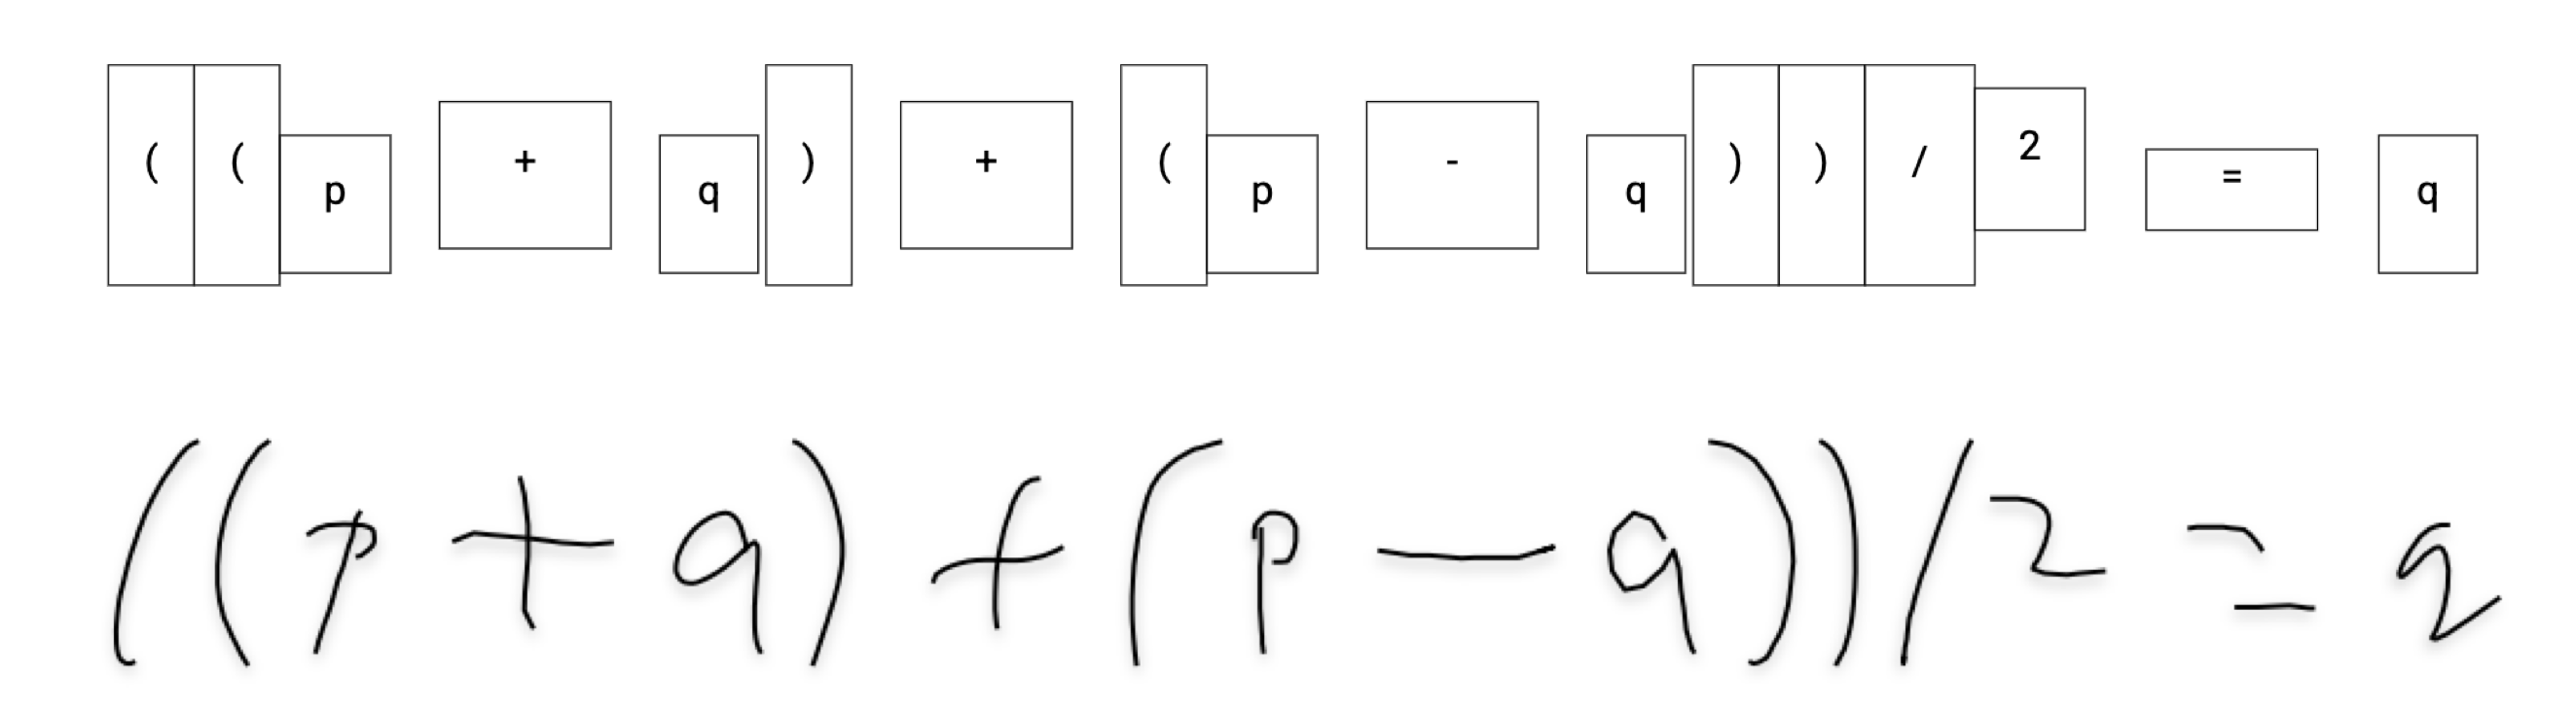 ( ( p + q ) + ( p - q ) ) / 2 = q
((p + q) + (p - q))/2 = q